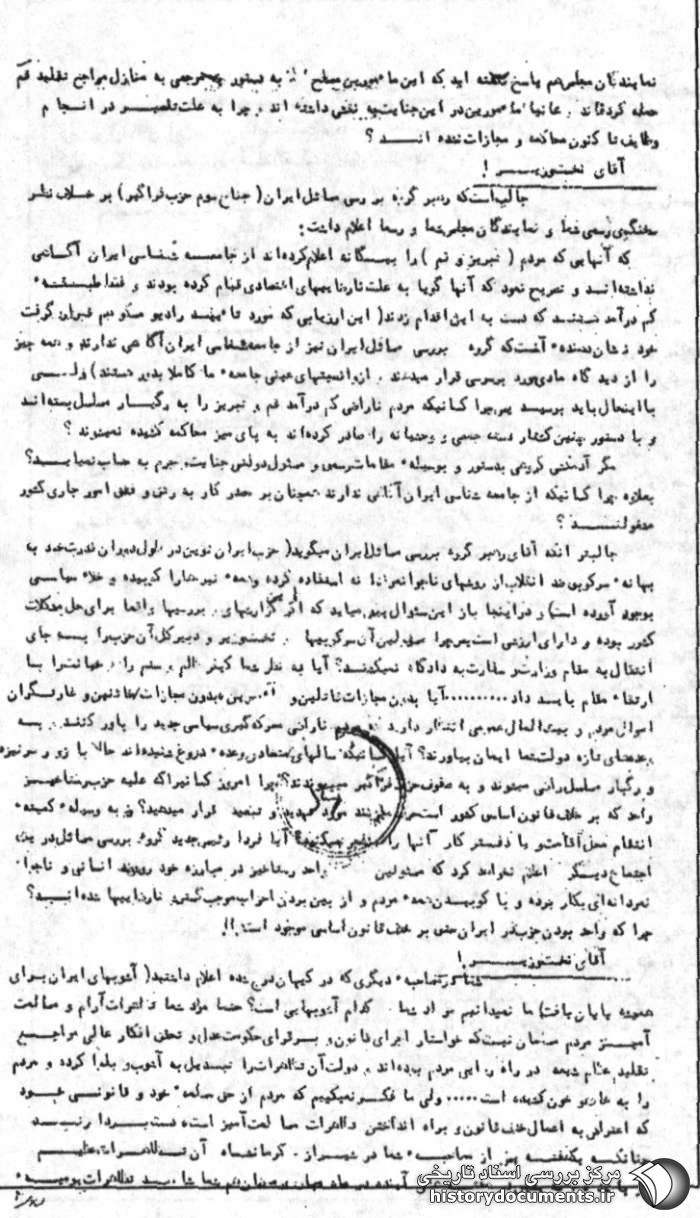 نمایندگان مجلس هم پاسخ نگفته اید که این مأمورین مسلح به دستور چه مرجعی به منازل مراجع تقلید قم
حمله کرده‌اند . ثانیا مأمورین در این جنایت چه نقشی داشته اند و چرا به علت تقصیر در انجام
وظایف تا کنون محاکمه و مجازات نشده اند ؟
آقای نخستوزیر !
جالب است که رهبر گروه بررسی مسائل ایران ( جناح سوم حزب فراگیر ) بر خلاف نظر
سخنگوی رسمی شما و نمایندگان مجلس شما و رسما اعلام داشت :
که آنهایی که مردم ( تبریز و قم ) را بیگانه اعلام کرده‌اند از جامعه شناسی ایران آگاهی
نداشته‌اند و تصریح نمود که آنها گویا به علت نارضاییهای اقتصادی قیام کرده بودند و فقط طبقه
کم درآمد هستند که دست به این اقدام زدند ( این ارزیابی که مورد تأیید رادیو مسکو هم قرار گرفت
خود نشان دهنده آنست که گروه بررسی مسائل ایران نیز از جامعه شناسی ایران آگاهی ندارند و همه چیز
را از دید گاه مادی مورد بررسی قرار میدهند و از واقعیتهای عینی جامعه ما کاملا بدور هستند ) ولی
با اینحال باید پرسید پس چرا کسانیکه مردم ناراضی کم درآمد قم و تبریز را به رگبار مسلسل بسته‌اند
و یا دستور چنین کشتار دسته جمعی و وحشیانه را صادر کرده‌اند به پای میز محاکمه کشیده نمیشوند ؟
مگر آدمکشی گروهی بدستور و بوسیله مقامات رسمی و مسئول دولتی جنایت و جرم به حساب نمیآید ؟
بعلاوه چرا کسانیکه از جامعه شناسی ایران آشنائی ندارند همچنان بر مصدر کار به رتق و فتق امور جاری کشور
مشغولند ؟
جالبتر آنکه آقای رهبر گروه بررسی مسائل ایران میگوید ( حزب ایران نوین در طول دوران قدرت خود به
بهانه سرکوبی ضد انقلاب از روشهای ناجوانمردانه استفاده کرده و همه نیروها را کوبیده و خلاء سیاسی
بوجود آورده است ) و در اینجا باز این سئوال پیش میاید که اگر گزارشهای بررسیها واقعا برای حل مشکلات
کشور بوده و دارای ارزشی است پس چرا مسئولین آن سرکوبیها نخستوزیر و دبیرکل آن حزب را بسه جای
انتقال به مقام وزارت و سفارت به دادگاه نمیکشند ؟ آیا به نظر شما کیفر ظالم و ستم را و خیانت را با
ارتقاء مقام باید داد .......... آیا بدون مجازات قاتلین و آمرین و بدون مجازات خائنین و غارتگران
اموال مردم و بیت‌المال عمومی انتظار دارید که مردم ناراضی سرکه گیری سیاسی جدید را باور کنند و به
وعده‌های تازه دولت شما ایمان بیاورند ؟ آیا کسانیکه سالهای متمادی وعده دروغ شنیده‌اند حالا با زور سرنیزه
و رگبار مسلسل راضی میشوند و به صفوف حزب فراگیر می‌پیوندند ؟ چرا امروز کسانیرا که علیه حزب رستاخیز
واحد که بر خلاف قانون اساسی کشور است حرف میزنند مورد تهدید و تبعید قرار میدهید ؟ و به وسیله کمیته
انتقام محل اقامت و یا دفتر کار آنها را منفجر میکنید ؟ آیا فردا رئیس جدید گروه بررسی مسائل در یک
اجتماع دیگر اعلام نخواهد کرد که مسئولین واحد رستاخیز در مبارزه خود روشهای انسانی و ناجوا
نمردانه‌ای بکار برده و با کوبیدن همه مردم و از بین بردن احزاب موجب گسترش نارضاییها شده‌اند ؟
چرا که واحد بودن حزب در ایران حتی بر خلاف قانون اساسی موجود است !!
آقای نخستوزیر !
شما در مصاحبه دیگری که در کیهان درج شده اعلام داشتید ( آشوبهای ایران برای
همیشه پایان یافت ) ما نمیدانیم مراد شما کدام آشوبهایی است ؟ حتما مراد شما تظاهرات آرام و مسالمت
آمیز مردم مسلمان نیست که خواستار اجرای قانون و برقراری حکومت عدل و تحقق افکار عالی مراجع
تقلید عظام شیعه در راه رهایی مردم بوده‌اند و دولت آن تظاهرات را تبدیل به آشوب و بلوا کرده و مردم
را به خاک و خون کشیده است ..... ولی ما فکر نمیکنیم که مردم از حق مسلمه خود و قانونی خود
که اعتراض به اعمال خلاف قانون و براه انداختن تظاهرات مسالمت آمیز است دست بردارند
چنانکه یکهفته پس از مصاحبه شما در شیراز . کرمانشاه آن تظاهرات عظیم
مرکز بررسی اسناد تاریخی
historydocuments.ir